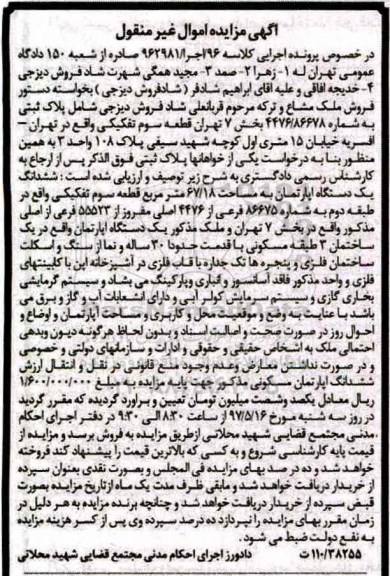 آگهی مزایده اموال غیر منقول
در خصوص پرونده اجرایی کلاسه ۹۶اجرا/۹۶۲۹۸۱ صادره از شعبه ۱۵۰ دادگاه
عمومی تهران له ۱- زهرا ۲- صمد ۳- مجید همگی شهرت شاد فروش دیزجی
۴- خدیجه آفاقی و علیه آقای ابراهیم شادفر ( شادفروش دیزجی ) بخواسته دستور
فروش ملک مشاع و ترکه مرحوم قربانعلی شاد فروش دیزجی شامل پلاک ثبتی
به شماره ۴۴۷۶/۸۶۶۷۸ بخش ۷ تهران قطعه سوم تفکیکی واقع در تهران –
افسریه خیابان ۱۵ متری اول کوچه شهید سیفی پلاک ۱۰۸ واحد ۳ به همین
منظور بنا به درخواست یکی از خواهانها پلاک ثبتی فوق الذکر پس از ارجاع به
کارشناس رسمی دادگستری به شرح زیر توصیف و ارزیابی شده است : ششدانگ
یک دستگاه آپارتمان به مساحت ۶۷/۱۸ متر مربع قطعه سوم تفکیکی واقع در
طبقه دوم به شماره ۸۶۶۷۵ فرعی از ۴۴۷۶ اصلی مفروز از ۵۵۵۲۳ فرعی از اصلی
مذکور واقع در بخش ۷ تهران و ملک مذکور یک دستگاه آپارتمان واقع در یک
ساختمان ۳ طبقه مسکونی با قدمت حدودا ۳۰ ساله و نما از سنگ و اسکلت
ساختمان فلزی و پنجره ها تک جداره با قاب فلزی در آشپزخانه اپن با کابینتهای
فلزی و واحد مذکور فاقد آسانسور و انباری وپارکینگ می باشد و سیستم گرمایشی
بخاری گازی و سیستم سرمایش کولر آبی و دارای انشعابات آب و گاز و برق می
باشد با عنایت به وضع و موقعیت محل و کاربری و مساحت آپارتمان و اوضاع و
احوال روز در صورت صحت و اصالت اسناد و بدون لحاظ هرگونه دیون وبدهی
احتمالی ملک به اشخاص حقیقی و حقوقی و ادارات و سازمانهای دولتی و خصوصی
و در صورت نداشتن معارض وعدم وجود منع قانونی در نقل و انتقال ارزش
ششدانگ آپارتمان مسکونی مذکور جهت پایه مزایده به مبلغ ۱/۶۰۰/۰۰۰/۰۰۰
ریال معادل یکصد وشصت میلیون تومان تعیین و برآورد گردیده که مقرر گردید
در روز سه شنبه مورخ ۹۷/۵/۱۶ از ساعت ۸:۳۰ الی ۹:۳۰ در دفتر اجرای احکام
مدنی مجتمع قضایی شهید محلاتی ازطریق مزایده به فروش برسد و مزایده از
قیمت پایه کارشناسی شروع و به کسی که بالاترین قیمت را پیشنهاد کند فروخته
خواهد شد و ده در صد بهای مزایده فی المجلس و بصورت نقدی بعنوان سپرده
از خریدار دریافت خواهد شد و مابقی ظرف مدت یک ماه ازتاریخ مزایده بصورت
قبض سپرده از خریدار دریافت خواهد شد و چنانچه برنده مزایده به هر دلیل در
زمان مقرر بهای مزایده را نپردازد ده درصد سپرده وی پس از کسر هزینه مزایده
به نفع دولت ضبط می شود.
۱۱۰/۳۸۲۵۵ ت دادورز اجرای احکام مدنی مجتمع قضایی شهید محلاتی